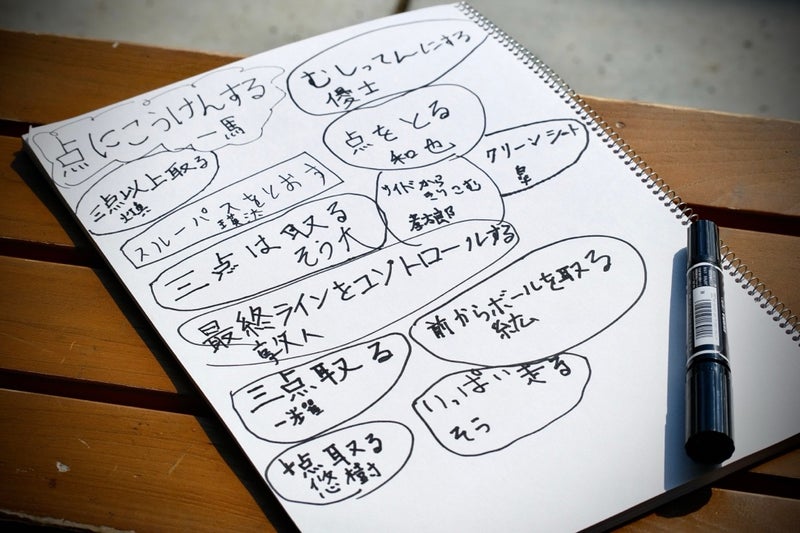 むしってんにする
優士
点にこうけんする
一馬
点をとる
和也
クリーンシート
三点以上取る
スルーパスをとおす
サイドから
きりこむ
三点は取る
そう大
最終ラインをコントロールする
前からボールを取る
三点取る
一耀
いっぱい走る
そう
十点取る
悠樹